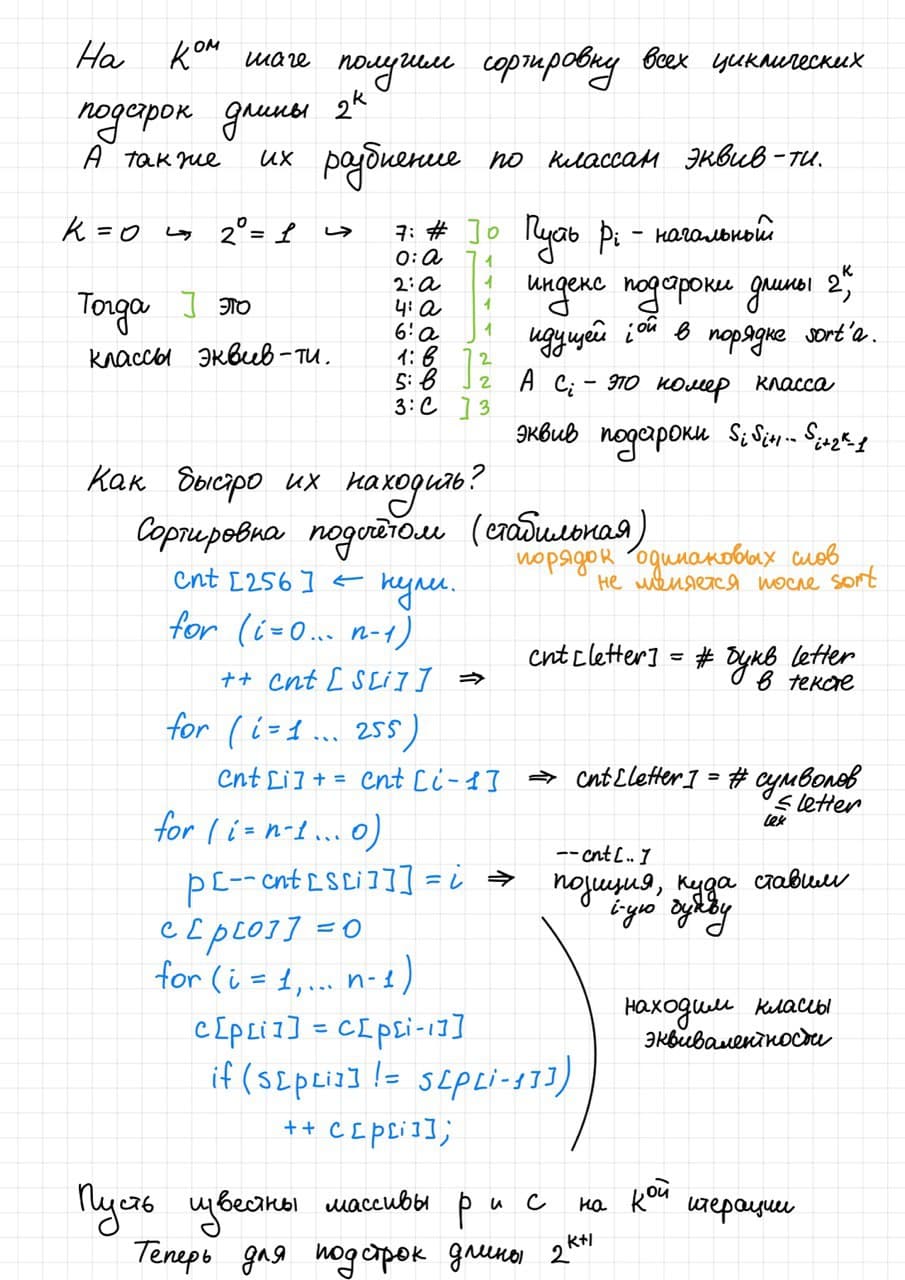 На K^ом шаге получим сортировку всех циклических
подстрок длины 2^k
А также их разбиение по классам эквив-ти.
K = 0 ↪ 2^0 = 1 ↪
7: # ] 0
0: a ] 1
2: a 1
4: a 1
6: a 1
1: в ] 2
5: в 2
3: c ] 3
Тогда ] это
классы эквив-ти.
Пусть p_i - начальный
индекс подстроки длины 2^k,
идущей i^ой в порядке sort'а.
А c_i - это номер класса
эквив подстроки s_i s_{i+1} .. s_{i+2^k-1}
Как быстро их находить?
Сортировка подсчётом (стабильная)
порядок одинаковых слов
не меняется после sort
cnt [256] ← нули.
for (i=0... n-1)
++ cnt [s[i]] ⇒ cnt[letter] = # букв letter
в тексте
for (i=1 ... 255)
cnt[i] += cnt [i-1] ⇒ cnt[letter] = # символов
≤ letter
lex
for (i = n-1 ... 0)
p[--cnt[s[i]]] = i ⇒ --cnt[..]
позиция, куда ставим
i-ую букву
c[p[0]] = 0
for (i = 1, ... n-1)
c[p[i]] = c[p[i-1]]
if (s[p[i]] != s[p[i-1]])
++ c[p[i]];
находим классы
эквивалентности
Пусть известны массивы p и c на K^ой итерации
Теперь для подстрок длины 2^{k+1}